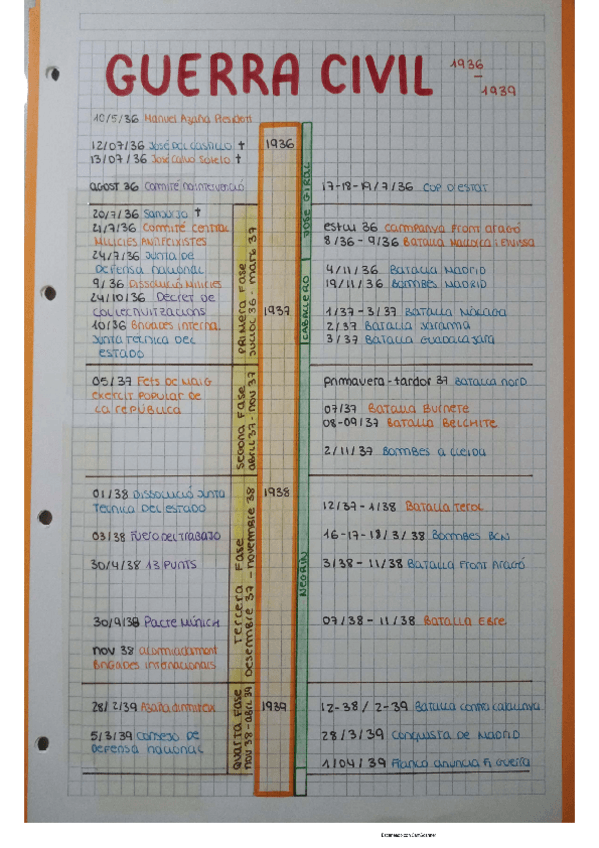 GUERRA CIVIL 1936
–
1939
10/5/36 Manuel Azaña President
12/07/36 José del Castillo †
13/07/36 José Calvo Sotelo †
agost 36 Comité no intervenció
20/7/36 Sanjurjo †
21/7/36 Comitè Central
Milícies Antifeixistes
24/7/36 Junta de
Defensa Nacional
9/36 Dissolució Milícies
24/10/36 Decret de
Col·lectivitzacions
10/36 Brigades Interna.
Junta Tècnica del
Estado
05/37 Fets de Maig
Exèrcit Popular de
la República
01/38 Dissolució Junta
Tècnica del Estado
03/38 Fuero del Trabajo
30/4/38 13 Punts
30/9/38 Pacte Múnich
nov 38 acomiadament
Brigades Internacionals
28/2/39 Azaña dimiteix
5/3/39 Consejo de
Defensa Nacional
Primera Fase
Juliol 36 - març 37
Segona Fase
abril 37 - nov 37
Tercera Fase
Desembre 37 - novembre 38
Quarta Fase
nov 38 - abril 39
1936
1937
1938
1939
José Giral
Caballero
Negrín
17-18-19/7/36 Cop d'estat
estiu 36 Campanya Front Aragó
8/36 - 9/36 Batalla Mallorca i Eivissa
4/11/36 Batalla Madrid
19/11/36 Bombes Madrid
1/37 - 3/37 Batalla Màlaga
2/37 Batalla Jarama
3/37 Batalla Guadalajara
primavera - tardor 37 Batalla Nord
07/37 Batalla Burnete
08-09/37 Batalla Belchite
2/11/37 Bombes a Lleida
12/37 - 1/38 Batalla Terol
16-17-18/3/38 Bombes BCN
3/38 - 11/38 Batalla Front Aragó
07/38 - 11/38 Batalla Ebre
12-38 / 2-39 Batalla contra Catalunya
28/3/39 Conquista de Madrid
1/04/39 Franco anuncia fi guerra
Escaneado con CamScanner